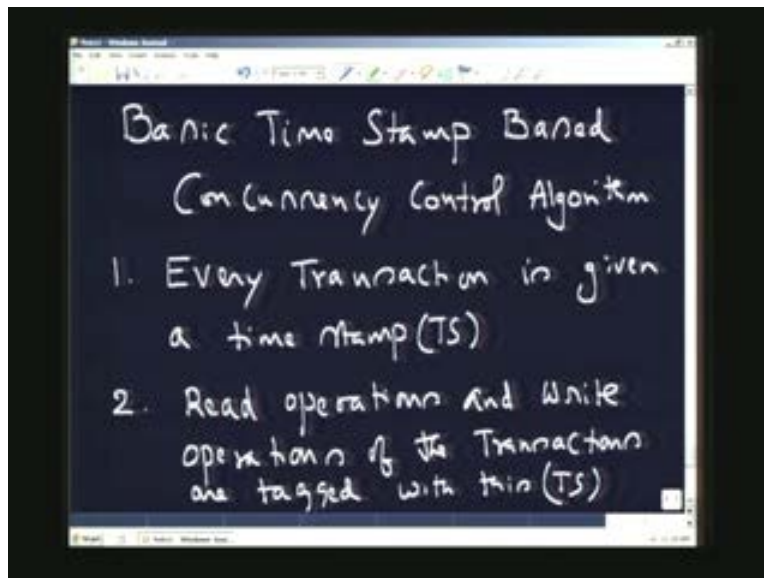 Basic Time Stamp Based
Concurrency Control Algorithm
1. Every Transaction is given
a time stamp (TS)
2. Read operations and Write
operations of the Transactions
are tagged with this (TS)